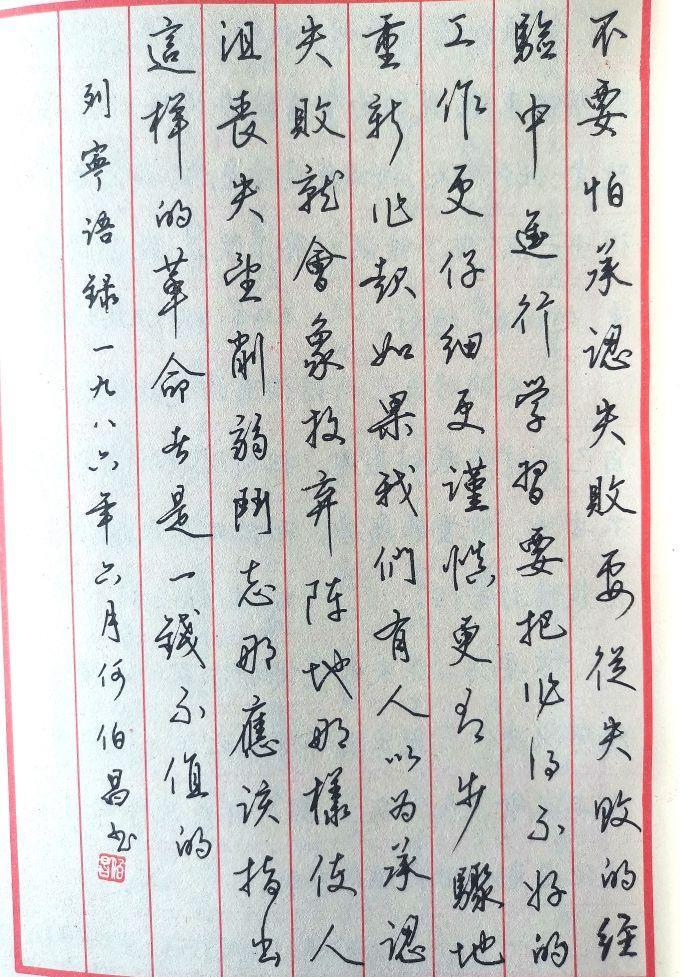 不要怕承認失敗要從失敗的經
驗中進行学習要把作得不好的
工作更仔細更謹慎更有步驟地
重新作起如果我們有人以为承認
失敗就會象放弃陣地那樣使人
沮喪失望削弱鬥志那應該指出
這样的革命者是一錢不值的
列寧語録一九八六年六月何伯昌书
伯昌